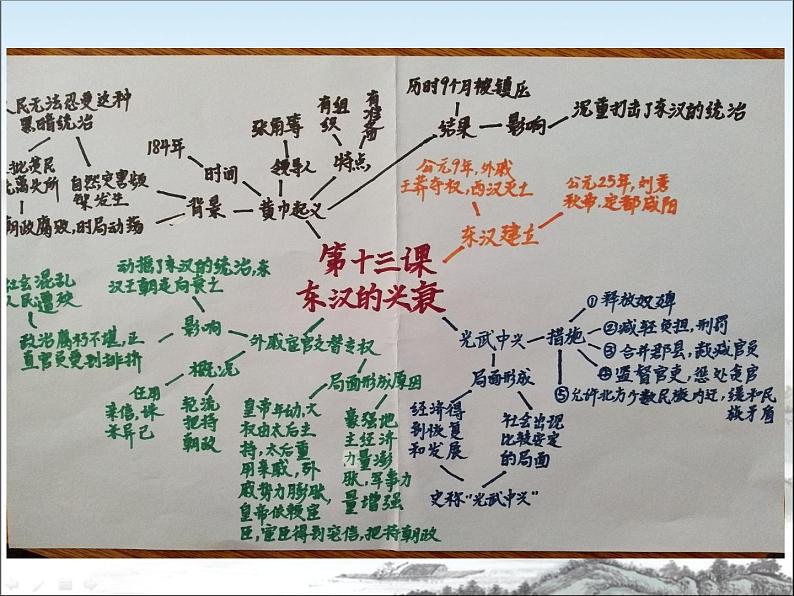 第十三课
东汉的兴衰
人民无法忍受这种
黑暗统治
批贫民
离失所
自然灾害频
繁发生
朝政腐败,时局动荡
背景
184年
时间
张角等
领导人
有组
织
有准
备
特点
黄巾起义
历时9个月被镇压
结果
影响
沉重打击了东汉的统治
公元9年,外戚
王莽夺权,西汉灭亡
公元25年,刘秀
称帝,定都咸阳
东汉建立
光武中兴
措施
①释放奴婢
②减轻负担,刑罚
③合并郡县,裁减官员
④监督官吏,惩处贪官
⑤允许北方少数民族内迁,缓和民
族矛盾
局面形成
经济得
到恢复
和发展
社会出现
比较安定
的局面
史称"光武中兴"
外戚宦官交替专权
影响
动摇了东汉的统治,东
汉王朝走向衰亡
社会混乱
人民遭殃
政治腐朽不堪,正
直官员受到排挤
概况
任用
亲信,诛
杀异己
轮流
把持
朝政
局面形成原因
皇帝年幼,大
权由太后主
持,太后重
用亲戚,外
戚势力膨胀,
皇帝依赖宦
臣,宦臣得到宠信,把持朝政
豪强地
主经济
力量膨
胀,军事力
量增强